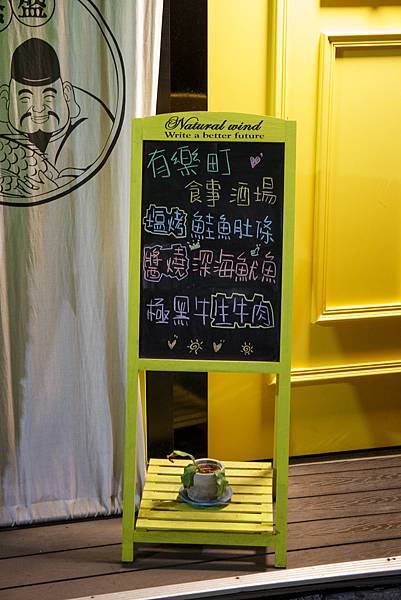 盛
Natural wind
Write a better future
有樂町
食事 酒場
塩烤鮭魚肚條
醬燒深海魷魚
極黑牛生牛肉